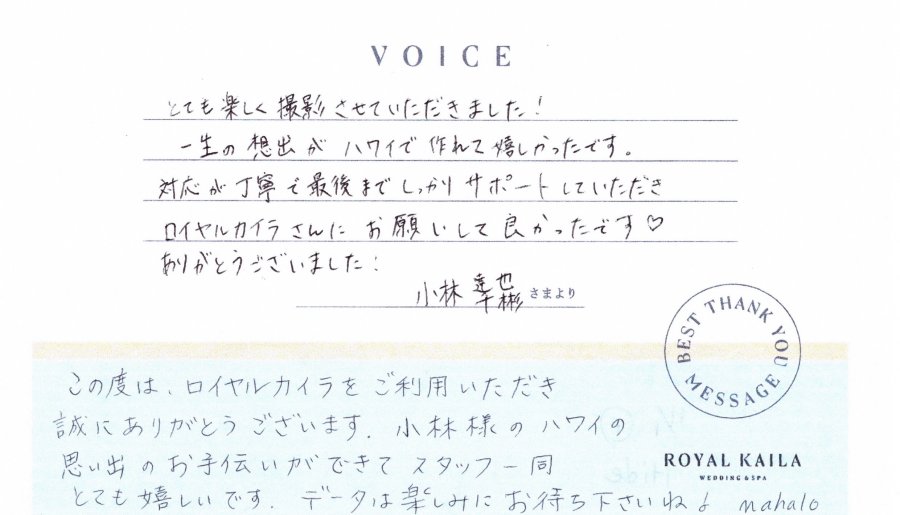 VOICE
とても楽しく撮影させていただきました！
一生の想出がハワイで作れて嬉しかったです。
対応が丁寧で最後までしっかりサポートしていただき
ロイヤルカイラさんにお願いして良かったです♡
ありがとうございました！
小林 達也
千彬 さまより
BEST THANK YOU MESSAGE
この度は、ロイヤルカイラをご利用いただき
誠にありがとうございます。小林様のハワイの
思い出のお手伝いができてスタッフ一同
とても嬉しいです。データは楽しみにお待ち下さいね♪ mahalo
ROYAL KAILA
WEDDING & SPA